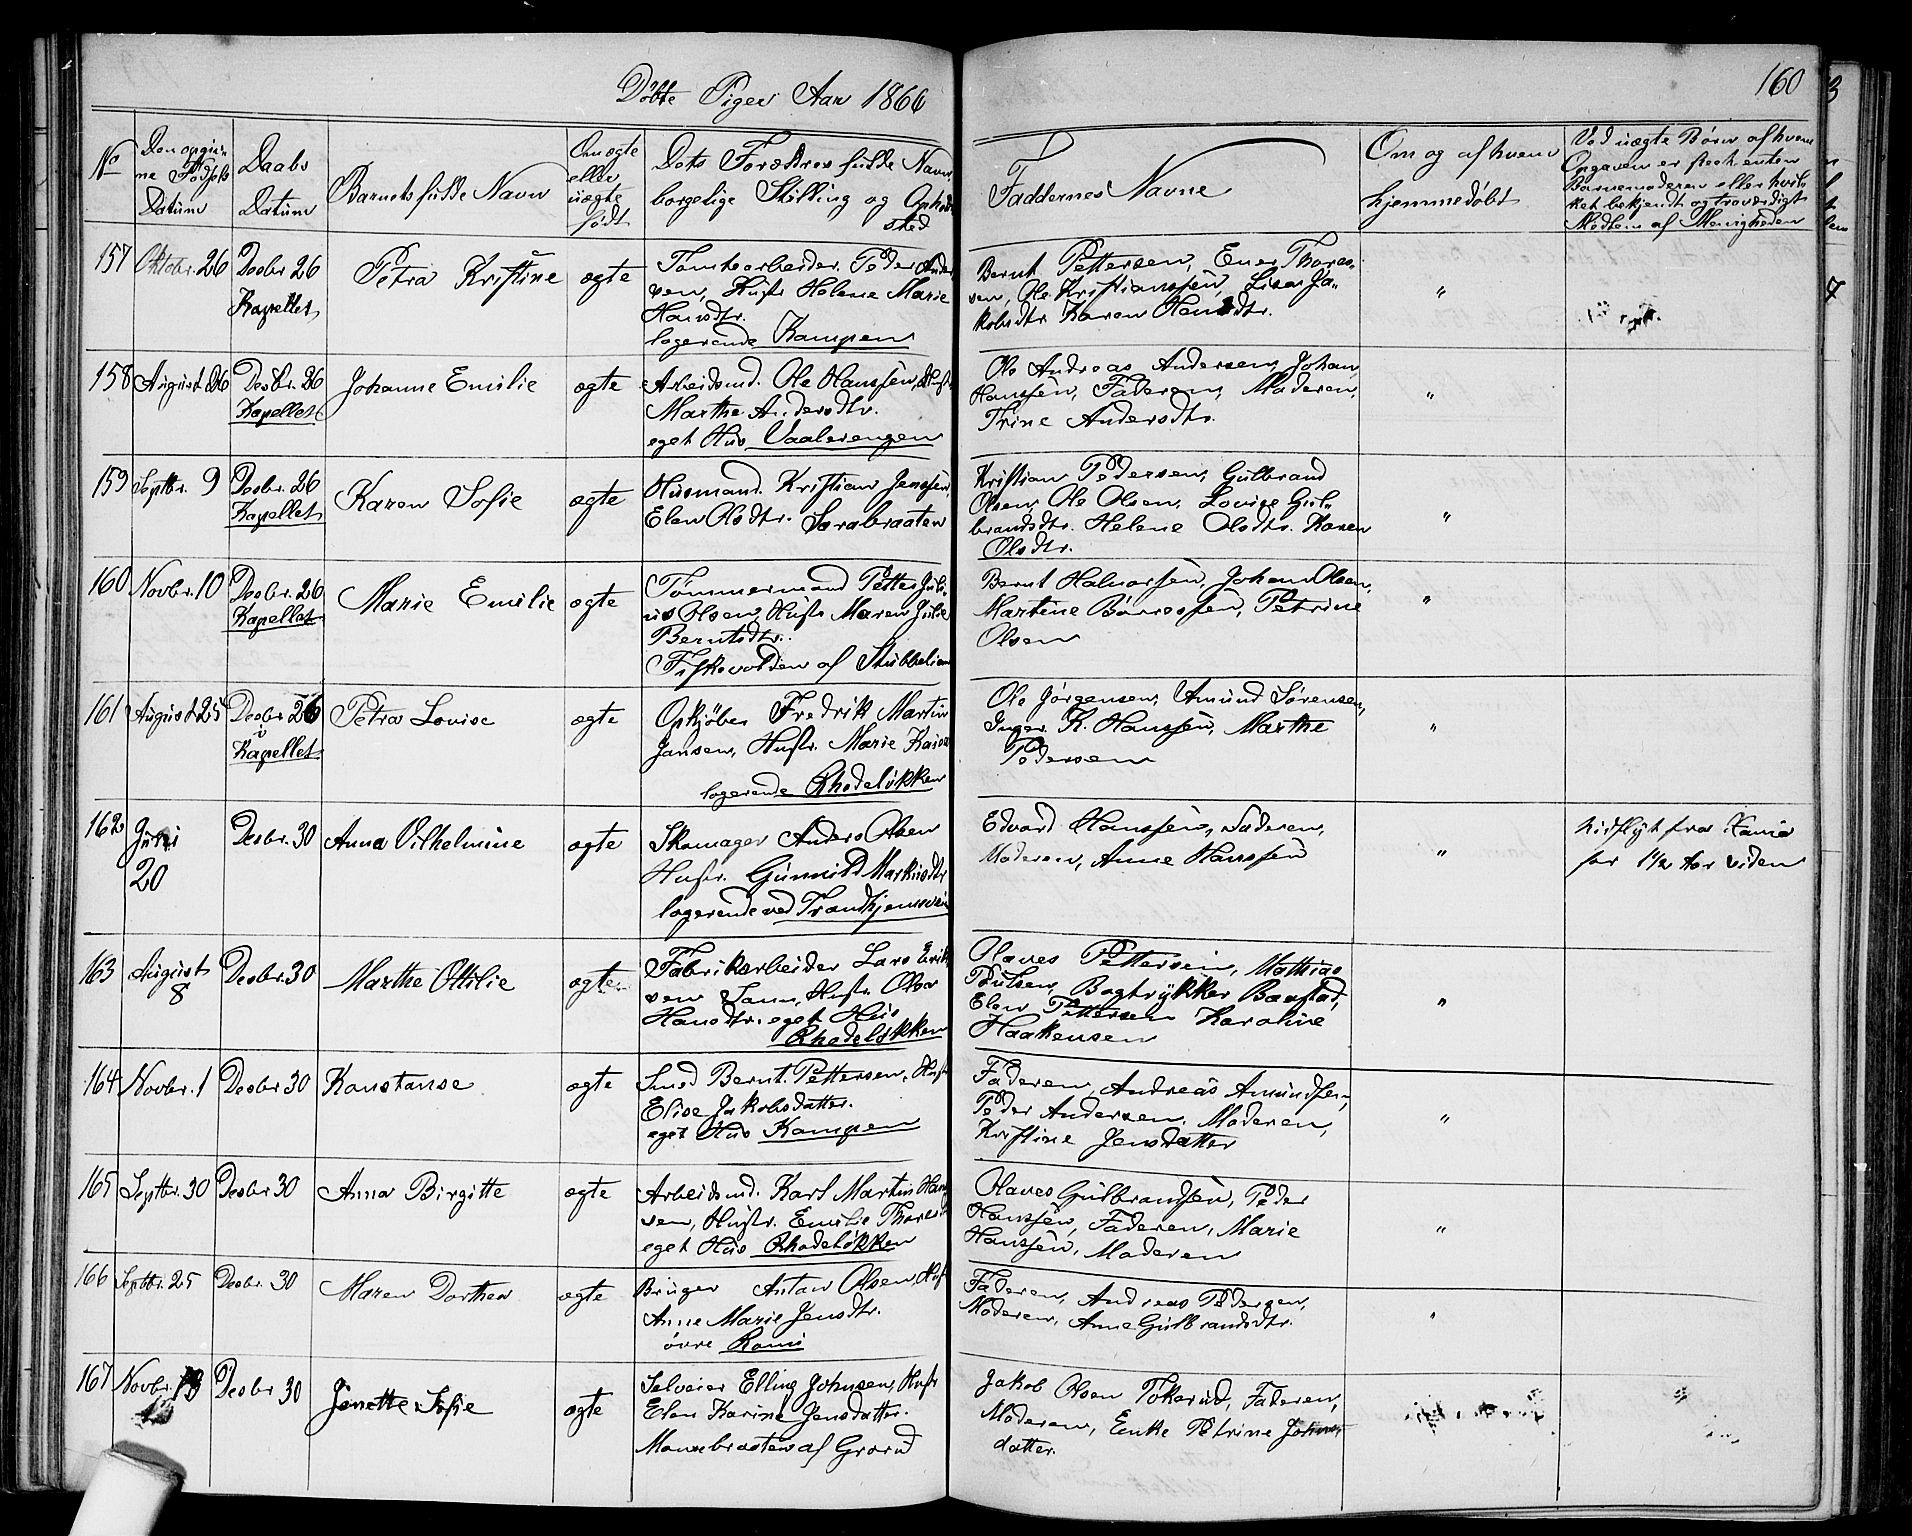 Døbte Piger Aar 1866
160
No
Den opgiv-
ne Fødsels
Datum
Daabs
Datum
Barnets fulde Navn
Om ægte
eller
uægte
født
Dets Forældres fulde Navn
borgelige Stilling og Opholds
sted
Faddernes Navne
Om og af hvem
hjemmedøbt
Ved uægte Børn af hvem
Opgaven er skeet enten
Barnemoderen eller hvil-
ket bekjendt og troværdigt
Medlem af Menigheden
157 Oktobr. 26 Desbr 26
Kapellet
Petra Kristine ægte
Tomtearbeider Peder Ander
sen, Hustr Helene Marie
Hansdtr.
logerende Kampen
Bernt Pettersen, Ener Thores-
sen, Ole Kristianssen, Lisa Ja-
kobsdtr Karen Hansdtr.
"
158 August 26 Desbr. 26
Kapellet
Johanne Emilie ægte
Arbeidsmd. Ole Hanssen, Hustr
Marthe Andersdtr.
eget Hus Vaalerengen
Ole Andreas Andersen, Johan
Hanssen, Faderen, Moderen,
Trine Andersdtr.
"
159 Septbr. 9 Desbr. 26
Kapellet
Karen Sofie ægte
Husmand. Kristian Jenssen,
Elen Olsdtr. Sorabraaten
Kristian Pedersen, Gulbrand
Olsen, Ole Olsen, Lovise Gul-
brandsdtr. Helene Olsdtr. Karen
Olsdtr.
"
160 Novbr. 10 Desbr. 26
Kapellet
Marie Emilie ægte
Tømmermand Petter Juli-
us Olsen, Hustr Maren Julie
Berntsdtr.
Fiskevolden af Stubbelien
Bernt Halvorsen, Johan Olsen,
Martine Børressen, Petrine
Olsen
"
161 August 25 Desbr 26
i
Kapellet
Petra Lovise ægte
Opkjøber Fredrik Martin
Jansen, Hustr. Marie Kaisa
logerende Rhodeløkken
Ole Jørgensen, Amund Sørensen,
Inger K. Hanssen, Marthe
Pedersen
"
162 Juli
20
Desbr. 30 Anna Vilhelmine ægte
Skomager Anders Olsen
Hustr. Gunnild Markusdtr
logerende ved Trondhjemsvei
Edvard Hanssen, Faderen,
Moderen, Anne Hanssen
"
hidflyt fra Xania
for 1 1/2 Aar siden
163 August
8
Desbr. 30 Marthe Ottilie ægte
Fabrikarbeider Lars Erik-
sen Hustr. Olea
Hansdtr. eget Hus
Rhodeløkken
Olaves Pettersen, Mathias
Poulsen, Bogtrykker Baastad,
Elen Pettersen Karoline
Haakensen
"
164 Novbr. 1 Desbr 30 Konstanse ægte
Smed Bernt Pettersen, Hustr
Elise Jakobsdatter.
eget Hus Kampen
Faderen, Andreas Amundsen,
Peder Andersen, Moderen,
Kristine Jensdatter
"
165 Septbr. 30 Desbr 30 Anna Birgitte ægte
Arbeidsmd. Karl Martin Han
sen, Hustr. Emilie
eget Hus Rhodeløkken
Olaves Gulbrandsen, Peder
Hanssen, Faderen, Marie
Hanssen, Moderen
"
166 Septbr. 25 Desbr. 30 Maren Dorthea ægte
Bruger Anton Olsen, Hustr
Anne Marie Jensdtr.
övre
Faderen, Andreas Pedersen,
Moderen, Anne Gulbrandsdtr.
"
167 Novbr. 13 Desbr 30 Jenette Sofie ægte
Selveier Elling Johnsen, Hustr
Elen Karine Jensdatter.
Mousebraaten af Grorud
Jakob Olsen Tokerud, Faderen,
Moderen, Enke Petrine Johns-
datter.